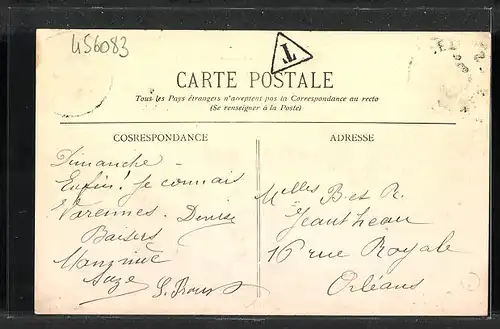 456083
T
CARTE POSTALE
Tous les Pays étrangers n'acceptent pas la Correspondance au recto
(Se renseigner à la Poste)
COSRESPONDANCE
Dimanche -
Enfin! Je connais
Varennes. Denise
Baisers
Suze
ADRESSE
Melles B. et R.
Jeantheau
16 rue Royale
Orléans